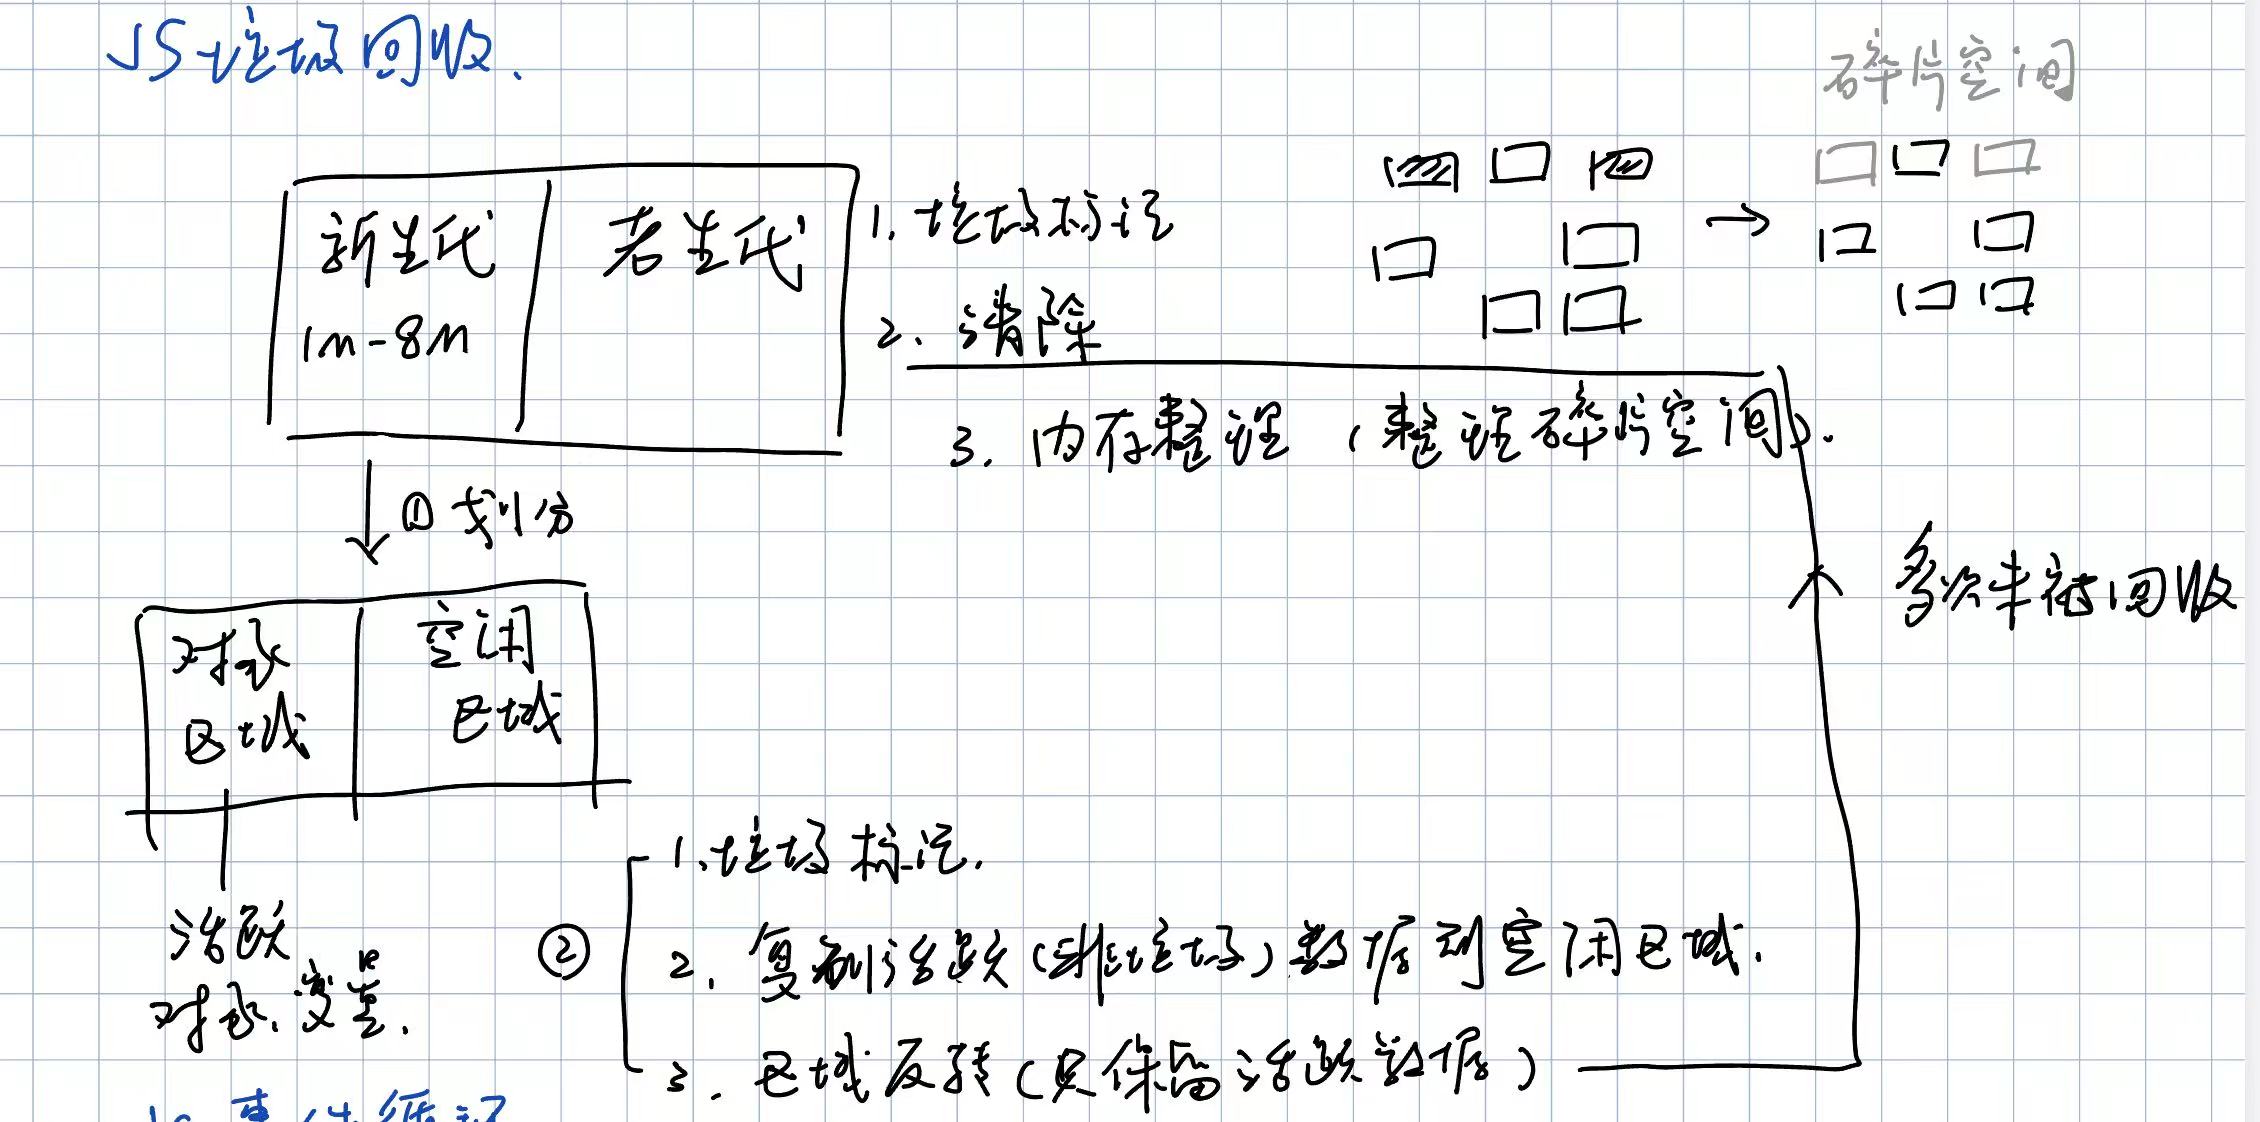 JS垃圾回收.
碎片空间
新生代
1m-8m
老生代
1. 垃圾标记
2. 清除
3. 内存整理 (整理碎片空间).
① 划分
多次未被回收
对象
区域
空闲
区域
活跃
对象、变量.
②
1. 垃圾标记.
2. 复制活跃(非垃圾)数据到空闲区域.
3. 区域反转(只保留活跃数据)